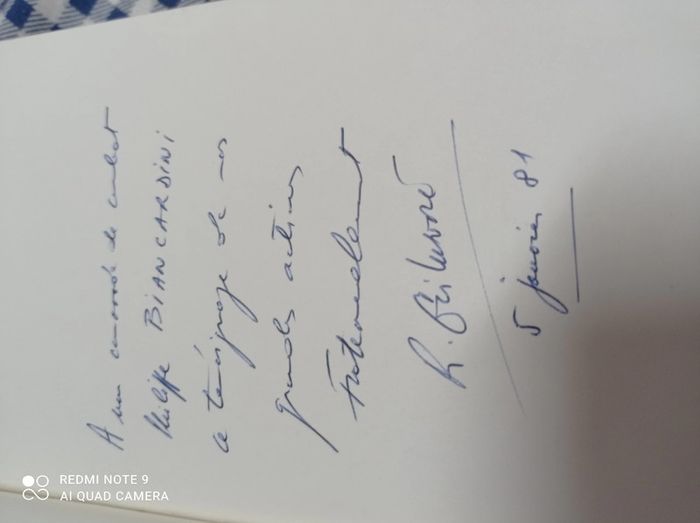 A mon camarade de combat
Philippe BIANCARDINI
ce témoignage de nos
grandes actions
fraternellement
R.
5 janvier 81
REDMI NOTE 9
AI QUAD CAMERA